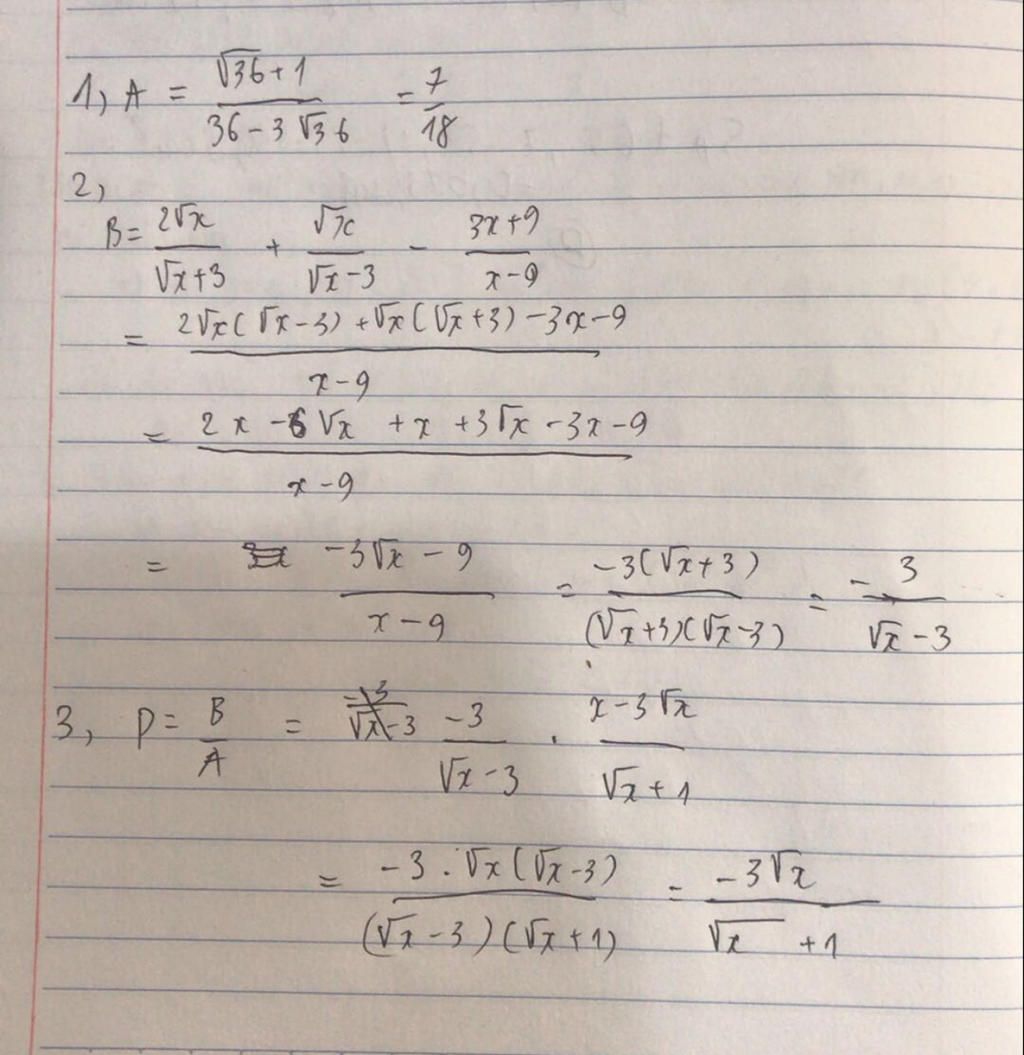 1, A = (√36 + 1)/(36 - 3√36) = 7/18
2,
B = 2√x/(√x+3) + √x/(√x-3) - (3x+9)/(x-9)
= (2√x(√x-3) + √x(√x+3) - 3x - 9)/(x-9)
= (2x - 6√x + x + 3√x - 3x - 9)/(x-9)
= (-3√x - 9)/(x-9) = -3(√x+3)/((√x+3)(√x-3)) = -3/(√x-3)
3, P = B/A = -3/(√x-3) . (x-3√x)/(√x+1)
= -3.√x(√x-3)/((√x-3)(√x+1)) = -3√x/(√x+1)